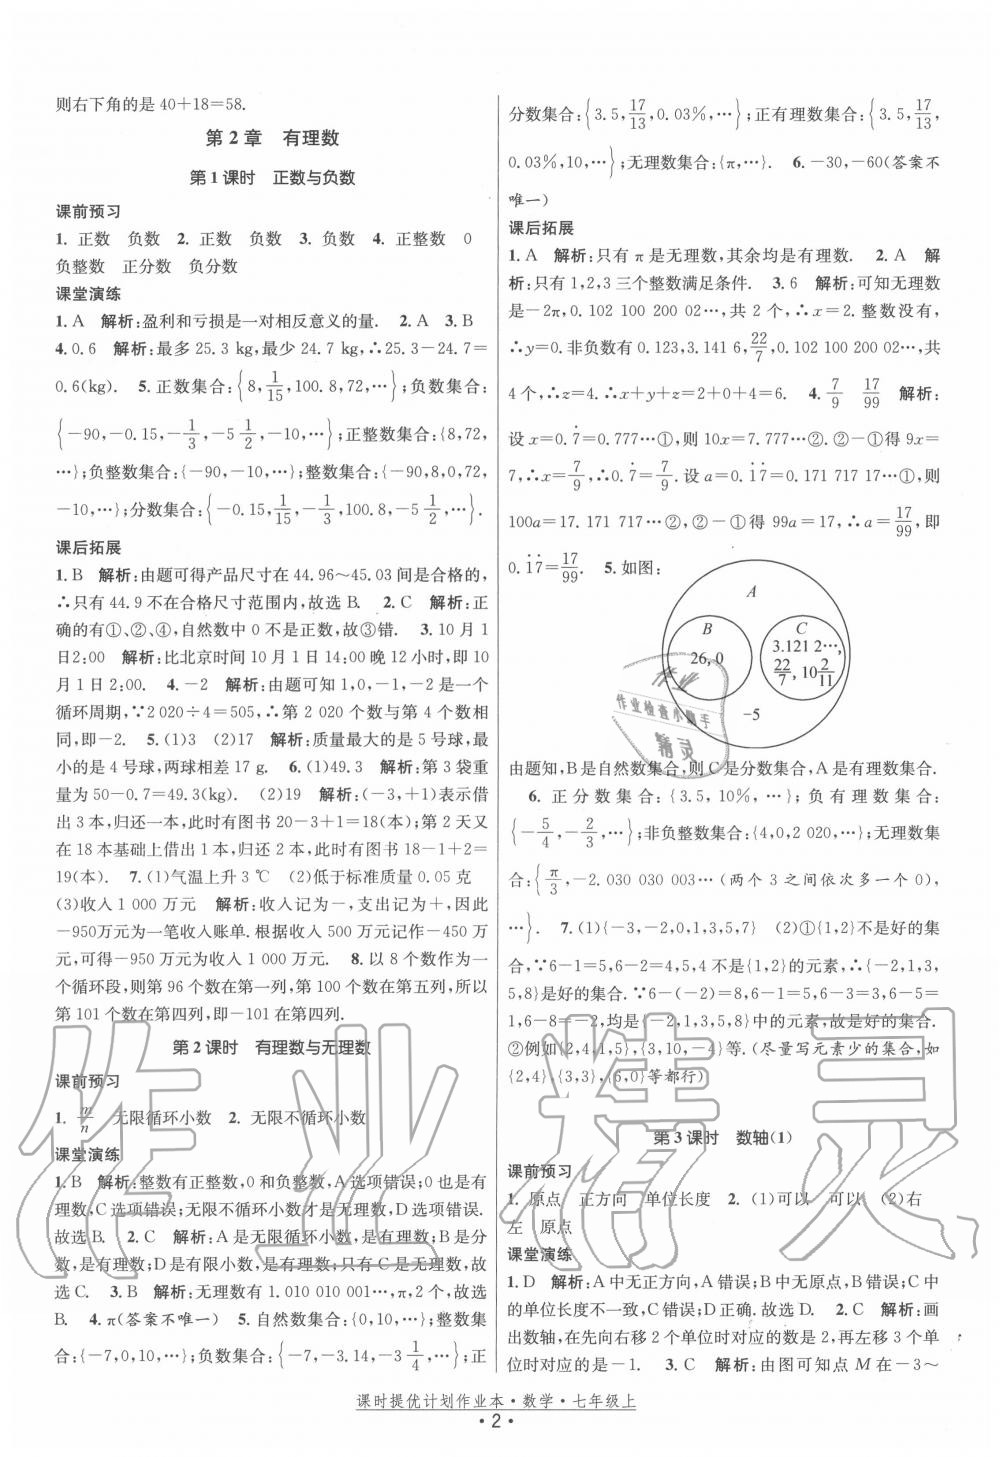 则右下角的是 40+18=58.
第 2 章　有理数
第 1 课时　正数与负数
课前预习
1. 正数　负数　2. 正数　负数　3. 负数　4. 正整数　0
负整数　正分数　负分数
课堂演练
1. A　解析:盈利和亏损是一对相反意义的量.　2. A　3. B
4. 0.6　解析:最多 25.3 kg,最少 24.7 kg,∴25.3-24.7=
0.6(kg).　5. 正数集合:{8,1/15,100.8,72,…};负数集合:
{-90,-0.15,-1/3,-5 1/2,-10,…};正整数集合:{8,72,
…};负整数集合:{-90,-10,…};整数集合:{-90,8,0,72,
-10,…};分数集合:{-0.15,1/15,-1/3,100.8,-5 1/2,…}.
课后拓展
1. B　解析:由题可得产品尺寸在 44.96~45.03 间是合格的,
∴只有 44.9 不在合格尺寸范围内,故选 B.　2. C　解析:正
确的有①、②、④,自然数中 0 不是正数,故③错.　3. 10 月 1
日2:00　解析:比北京时间 10 月 1 日 14:00 晚 12 小时,即 10
月 1 日 2:00.　4. -2　解析:由题可知 1,0,-1,-2 是一个
循环周期,∵2 020÷4=505,∴第 2 020 个数与第 4 个数相
同,即-2.　5. (1)3　(2)17　解析:质量最大的是 5 号球,最
小的是 4 号球,两球相差 17 g.　6. (1)49.3　解析:第 3 袋重
量为 50-0.7=49.3(kg).　(2)19　解析:(-3,+1)表示借
出 3 本,归还一本,此时有图书 20-3+1=18(本);第 2 天又
在 18 本基础上借出 1 本,归还 2 本,此时有图书 18-1+2=
19(本).　7. (1)气温上升 3 ℃　(2)低于标准质量 0.05 克
(3)收入 1 000 万元　解析:收入记为-,支出记为+,因此
-950万元为一笔收入账单.根据收入 500 万元记作-450 万
元,可得-950 万元为收入 1 000 万元.　8. 以 8 个数作为一
个循环段,则第 96 个数在第一列,第 100 个数在第五列,所以
第 101 个数在第四列,即-101 在第四列.
第 2 课时　有理数与无理数
课前预习
1. m/n　无限循环小数　2. 无限不循环小数
课堂演练
1. B　解析:整数有正整数,0 和负整数,A 选项错误;0 也是有
理数,C 选项错误;无限不循环小数才是无理数,D 选项错误.
故选 B.　2. C　解析:A 是无限循环小数,是有理数;B 是分
数,是有理数;D 是有限小数,是有理数,只有 C 是无理数,故
选 C.　3. B　解析:无理数有 1.010 010 001…,π,2 个,故选
B.　4. π(答案不唯一)　5. 自然数集合:{0,10,…};整数集
合:{-7,0,10,…};负数集合:{-7,-3.14,-3 1/4,…};正
分数集合:{3.5,17/13,0.03%,…};正有理数集合:{3.5,17/13,
0.03%,10,…};无理数集合:{π,…}　6. -30,-60(答案不
唯一)
课后拓展
1. A　解析:只有 π 是无理数,其余均是有理数.　2. A　解
析:只有 1,2,3 三个整数满足条件.　3. 6　解析:可知无理数
是-2π,0.102 100 200 02…,共 2 个,∴x=2.整数没有,
∴y=0.非负数有 0.123,3.141 6,22/7,0.102 100 200 02…,共
4 个,∴z=4.∴x+y+z=2+0+4=6.　4. 7/9　17/99　解析:
设 x=0.7̇=0.777…①,则 10x=7.777…②.②-①得 9x=
7,∴x=7/9,∴0.7̇=7/9.设 a=0.1̇7̇=0.171 717 17…①,则
100a=17.171 717…②,②-①得 99a=17,∴a=17/99,即
0.1̇7̇=17/99.　5. 如图:
A
B
26,0
C
3.121 2…,
22/7,10 2/11
-5
由题知,B 是自然数集合,则 C 是分数集合,A 是有理数集合.
6. 正分数集合:{3.5,10%,…};负有理数集合:
{-5/4,-2/3,…};非负整数集合:{4,0,2 020,…};无理数集
合:{π/3,-2.030 030 003…(两个 3 之间依次多一个 0),
…}.　7. (1){-3,-2,0,1,3,5,7}　(2)①{1,2}不是好的集
合,∵6-1=5,6-2=4,5,4 不是{1,2}的元素,∴{-2,1,3,
5,8}是好的集合.∵6-(-2)=8,6-1=5,6-3=3,6-5=
1,6-8=-2,均是{-2,1,3,5,8}中的元素,故是好的集合.
②例如{2,4,1,5},{3,10,-4}等.(尽量写元素少的集合,如
{2,4},{3,3},{6,0}等都行)
第 3 课时　数轴(1)
课前预习
1. 原点　正方向　单位长度　2. (1)可以　可以　(2)右
左　原点
课堂演练
1. D　解析:A 中无正方向,A 错误;B 中无原点,B 错误;C 中
的单位长度不一致,C 错误;D 正确.故选 D.　2. C　解析:画
出数轴,在先向右移 2 个单位时对应的数是 2,再左移 3 个单
位时对应的是-1.　3. C　解析:由图可知点 M 在-3~
课时提优计划作业本·数学·七年级上
·2·
作业
作业检查小助手
精灵
作业精灵